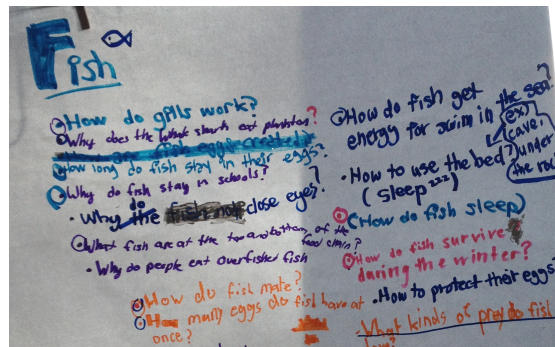 Fish
How do gills work?
Why does the whale shark eat plankton?
How long do fish stay in their eggs?
Why do fish stay in schools?
Why do fish not close eyes?
What fish are at the top and bottom of the
food chain?
Why do people eat overfished fish
How do fish mate?
How many eggs do fish have at
once?
How do fish get
energy for swim in the sea?
ex)
cave,
under
the rock
How to use the bed?
(sleep zzz)
(How do fish sleep)
How do fish survive
during the winter?
How to protect their eggs?
What kinds of prey do fish